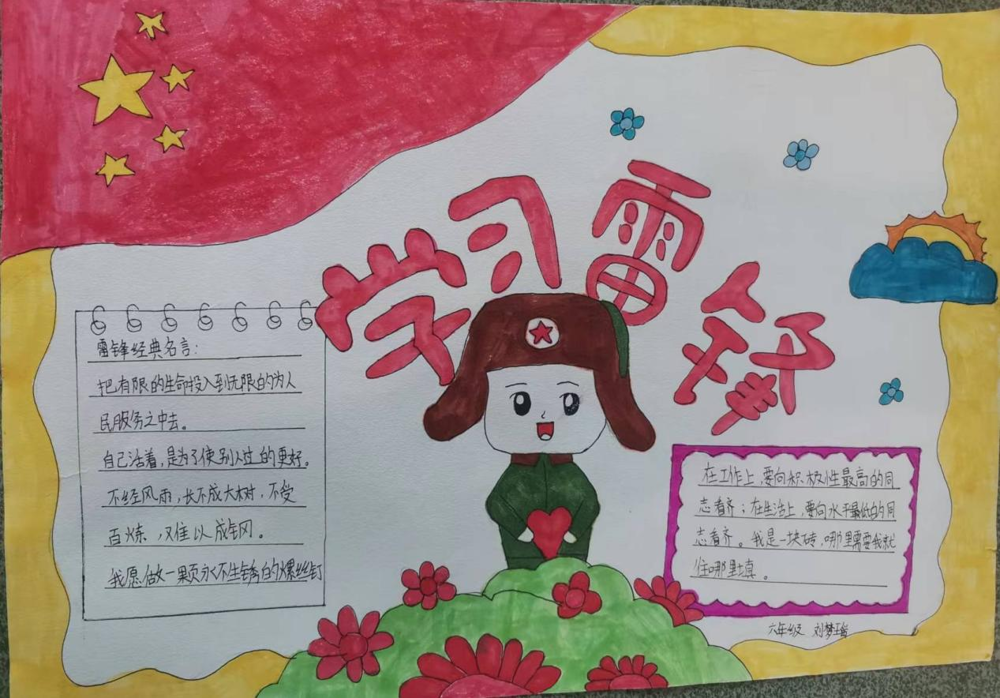 学习雷锋
雷锋经典名言:
把有限的生命投入到无限的为人
民服务之中去。
自己活着,是为了使别人过的更好。
不经风雨,长不成大树,不受
百炼,难以成钢。
我愿做一颗永不生锈的螺丝钉
在工作上,要向积极性最高的同
志看齐;在生活上,要向水平最低的同
志看齐。我是一块砖,哪里需要我就
往哪里填。
六年级 刘梦